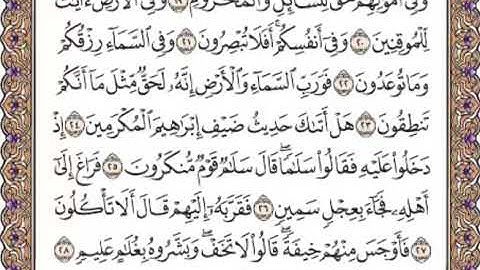 وَفِىٓ أَمْوَٰلِهِمْ حَقٌّ لِّلسَّآئِلِ وَٱلْمَحْرُومِ ١٩ وَفِى ٱلْأَرْضِ ءَايَٰتٌ
لِّلْمُوقِنِينَ ٢٠ وَفِىٓ أَنفُسِكُمْ أَفَلَا تُبْصِرُونَ ٢١ وَفِى ٱلسَّمَآءِ رِزْقُكُمْ
وَمَا تُوعَدُونَ ٢٢ فَوَرَبِّ ٱلسَّمَآءِ وَٱلْأَرْضِ إِنَّهُۥ لَحَقٌّ مِّثْلَ مَآ أَنَّكُمْ
تَنطِقُونَ ٢٣ هَلْ أَتَىٰكَ حَدِيثُ ضَيْفِ إِبْرَٰهِيمَ ٱلْمُكْرَمِينَ ٢٤ إِذْ
دَخَلُوا۟ عَلَيْهِ فَقَالُوا۟ سَلَٰمًا ۖ قَالَ سَلَٰمٌ قَوْمٌ مُّنكَرُونَ ٢٥ فَرَاغَ إِلَىٰٓ
أَهْلِهِۦ فَجَآءَ بِعِجْلٍ سَمِينٍ ٢٦ فَقَرَّبَهُۥٓ إِلَيْهِمْ قَالَ أَلَا تَأْكُلُونَ
٢٧ فَأَوْجَسَ مِنْهُمْ خِيفَةً ۖ قَالُوا۟ لَا تَخَفْ ۖ وَبَشَّرُوهُ بِغُلَٰمٍ عَلِيمٍ ٢٨